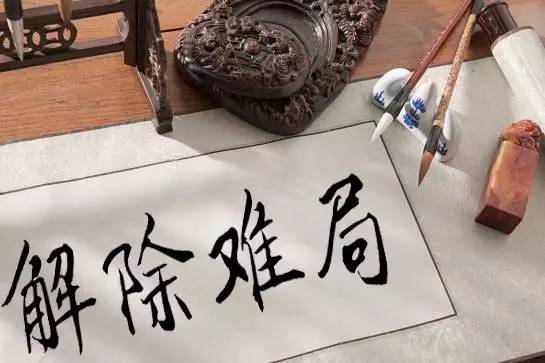 解除难局